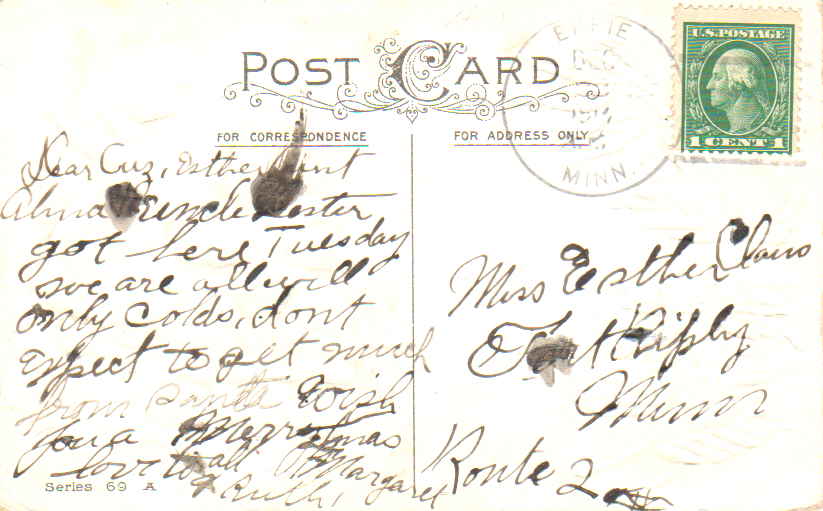 POST CARD
FOR CORRESPONDENCE
FOR ADDRESS ONLY
EFFIE
DEC
MINN.
U.S. POSTAGE
1 CENT 1
Dear Cuz, Esther Aunt
Alma & uncle Lester
got here Tuesday
we are all well
only colds, dont
expect to get much
from Santa Wish
you a Merry Xmas
love to all Margaret
& Ruth,
Series 69 A
Miss Esther
Fort Ripley
Minn
Route 2